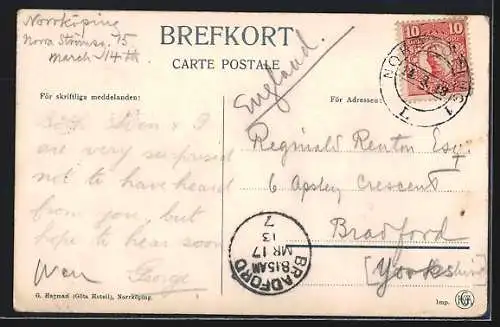 Norrköping
Norra Strömsg. 15
March 14th
BREFKORT
CARTE POSTALE
England.
10 10
NORRKÖPING 1
14.3.13
L
För skriftliga meddelanden:
För Adressen:
Both Sven & I
are very surprised
not to have heard
from you, but
hope to hear soon
George
Reginald Renton Esq
6 Apsley Crescent
Bradford
[Yorkshire]
BRADFORD
8.15AM
MR 17
13
7
G. Hagman (Göta Hotell), Norrköping.
Imp.